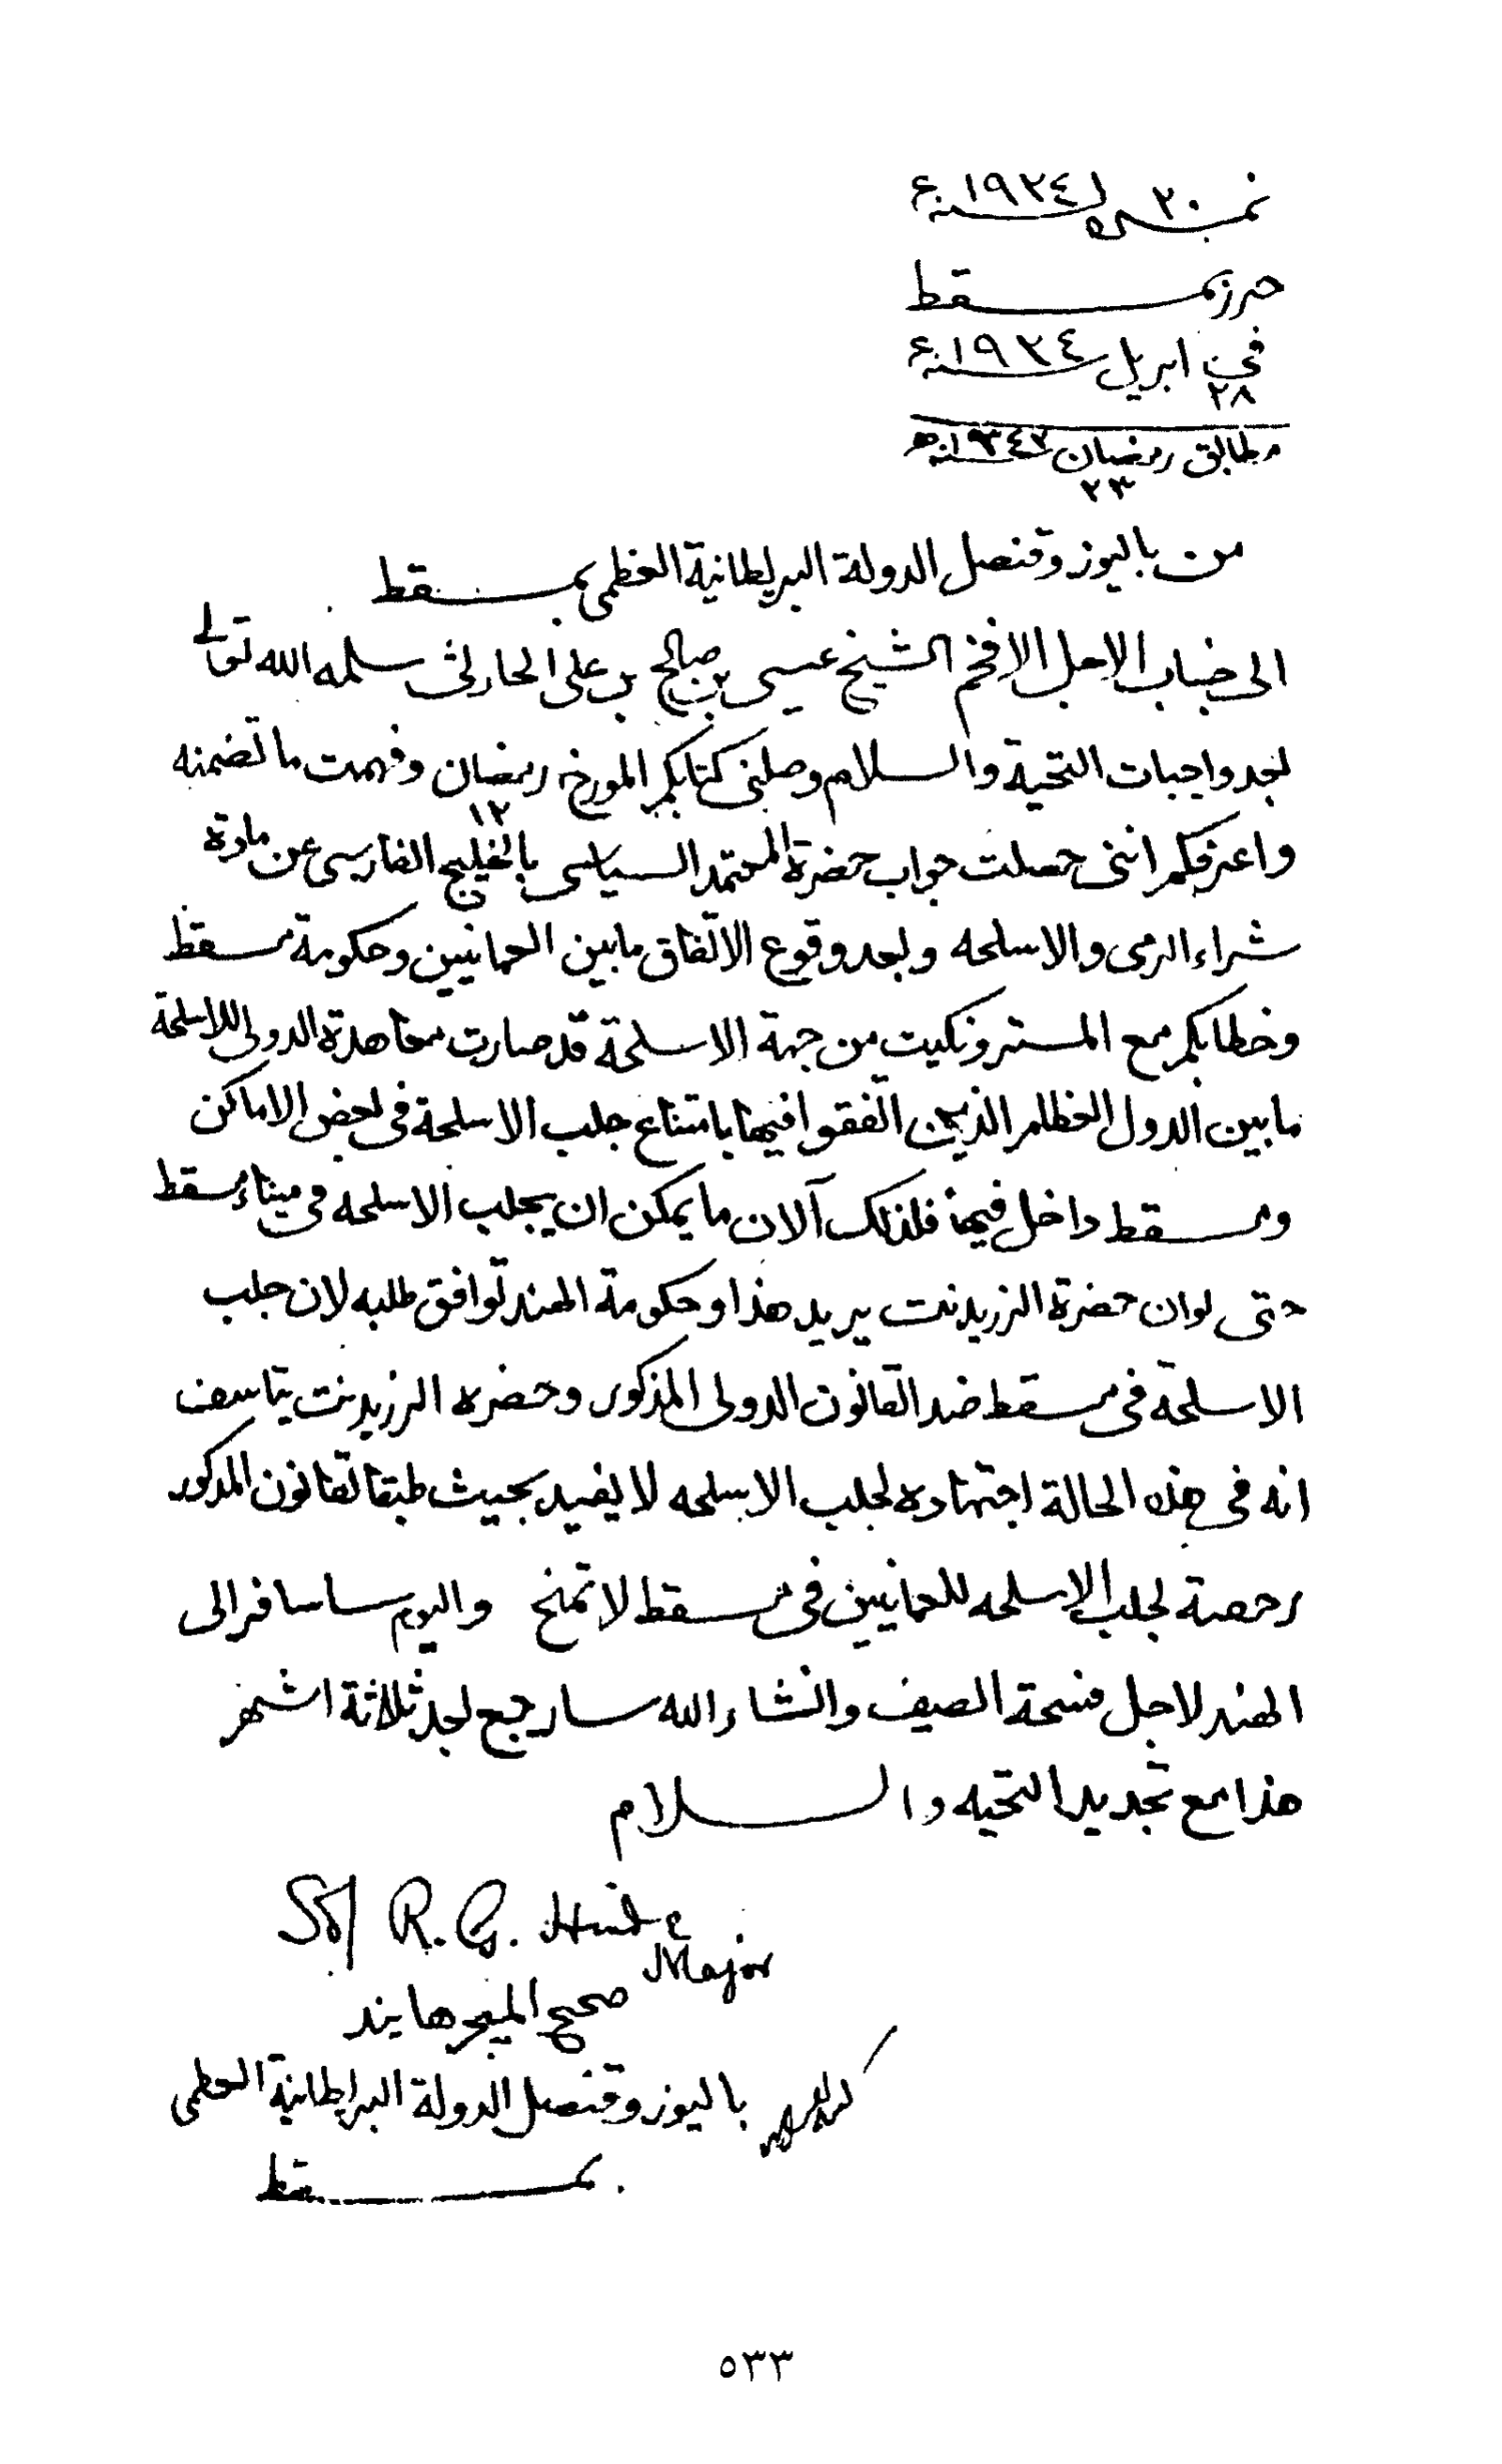 نمبر ٢٠ لسنة ١٩٢٤ء
حرر بمسقط
في ٢٨ ابريل سنة ١٩٢٤ء
مطابق ٢٣ رمضان سنة ١٣٤٢ه
من باليوز وقنصل الدولة البريطانية العظمى بمسقط
الى جناب الاجل الافخم الشيخ عيسى بن صالح بن على الحارثى سلمه الله تعالى
بعد واجبات التحية والسلام وصلنى كتابكم المورخ ١٢ رمضان وفهمت ما تضمنه
واعرفكم اننى حصلت جواب حضرة المعتمد السياسى بالخليج الفارسى عن مادة
شراء الرمى والاسلحه وبعد وقوع الاتفاق ما بين العمانيين وحكومة مسقط
وخطابكم مع المستر ونكيت من جهة الاسلحة قد صارت معاهدة الدولى للاسلحة
ما بين الدول العظام الذين اتفقوا فيها بامتناع جلب الاسلحة فى بعض الاماكن
ومسقط داخل فيها فلذلك آلان ما يمكن ان يجلب الاسلحه فى ميناء مسقط
حتى لو ان حضرة الرزيدنت يريد هذا وحكومة الهند توافق طلبه لان جلب
الاسلحة فى مسقط ضد القانون الدولى المذكور وحضره الرزيدنت يتاسف
انه فى هذه الحالة اجتهاده لجلب الاسلحه لا يفيد بحيث طبقا لقانون المذكور
رخصة لجلب الاسلحه للعمانيين فى مسقط لا تمنح واليوم ساسافر الى
الهند لاجل فسحة الصيف وانشاء الله سارجع بعد ثلاثة اشهر
هذا مع تجديد التحيه والسلام
Sd/ R. G. Hinde
Major
صحيح الميجر هايند
باليوز وقنصل الدولة البريطانية العظمى
بمسقط
٥٣٣